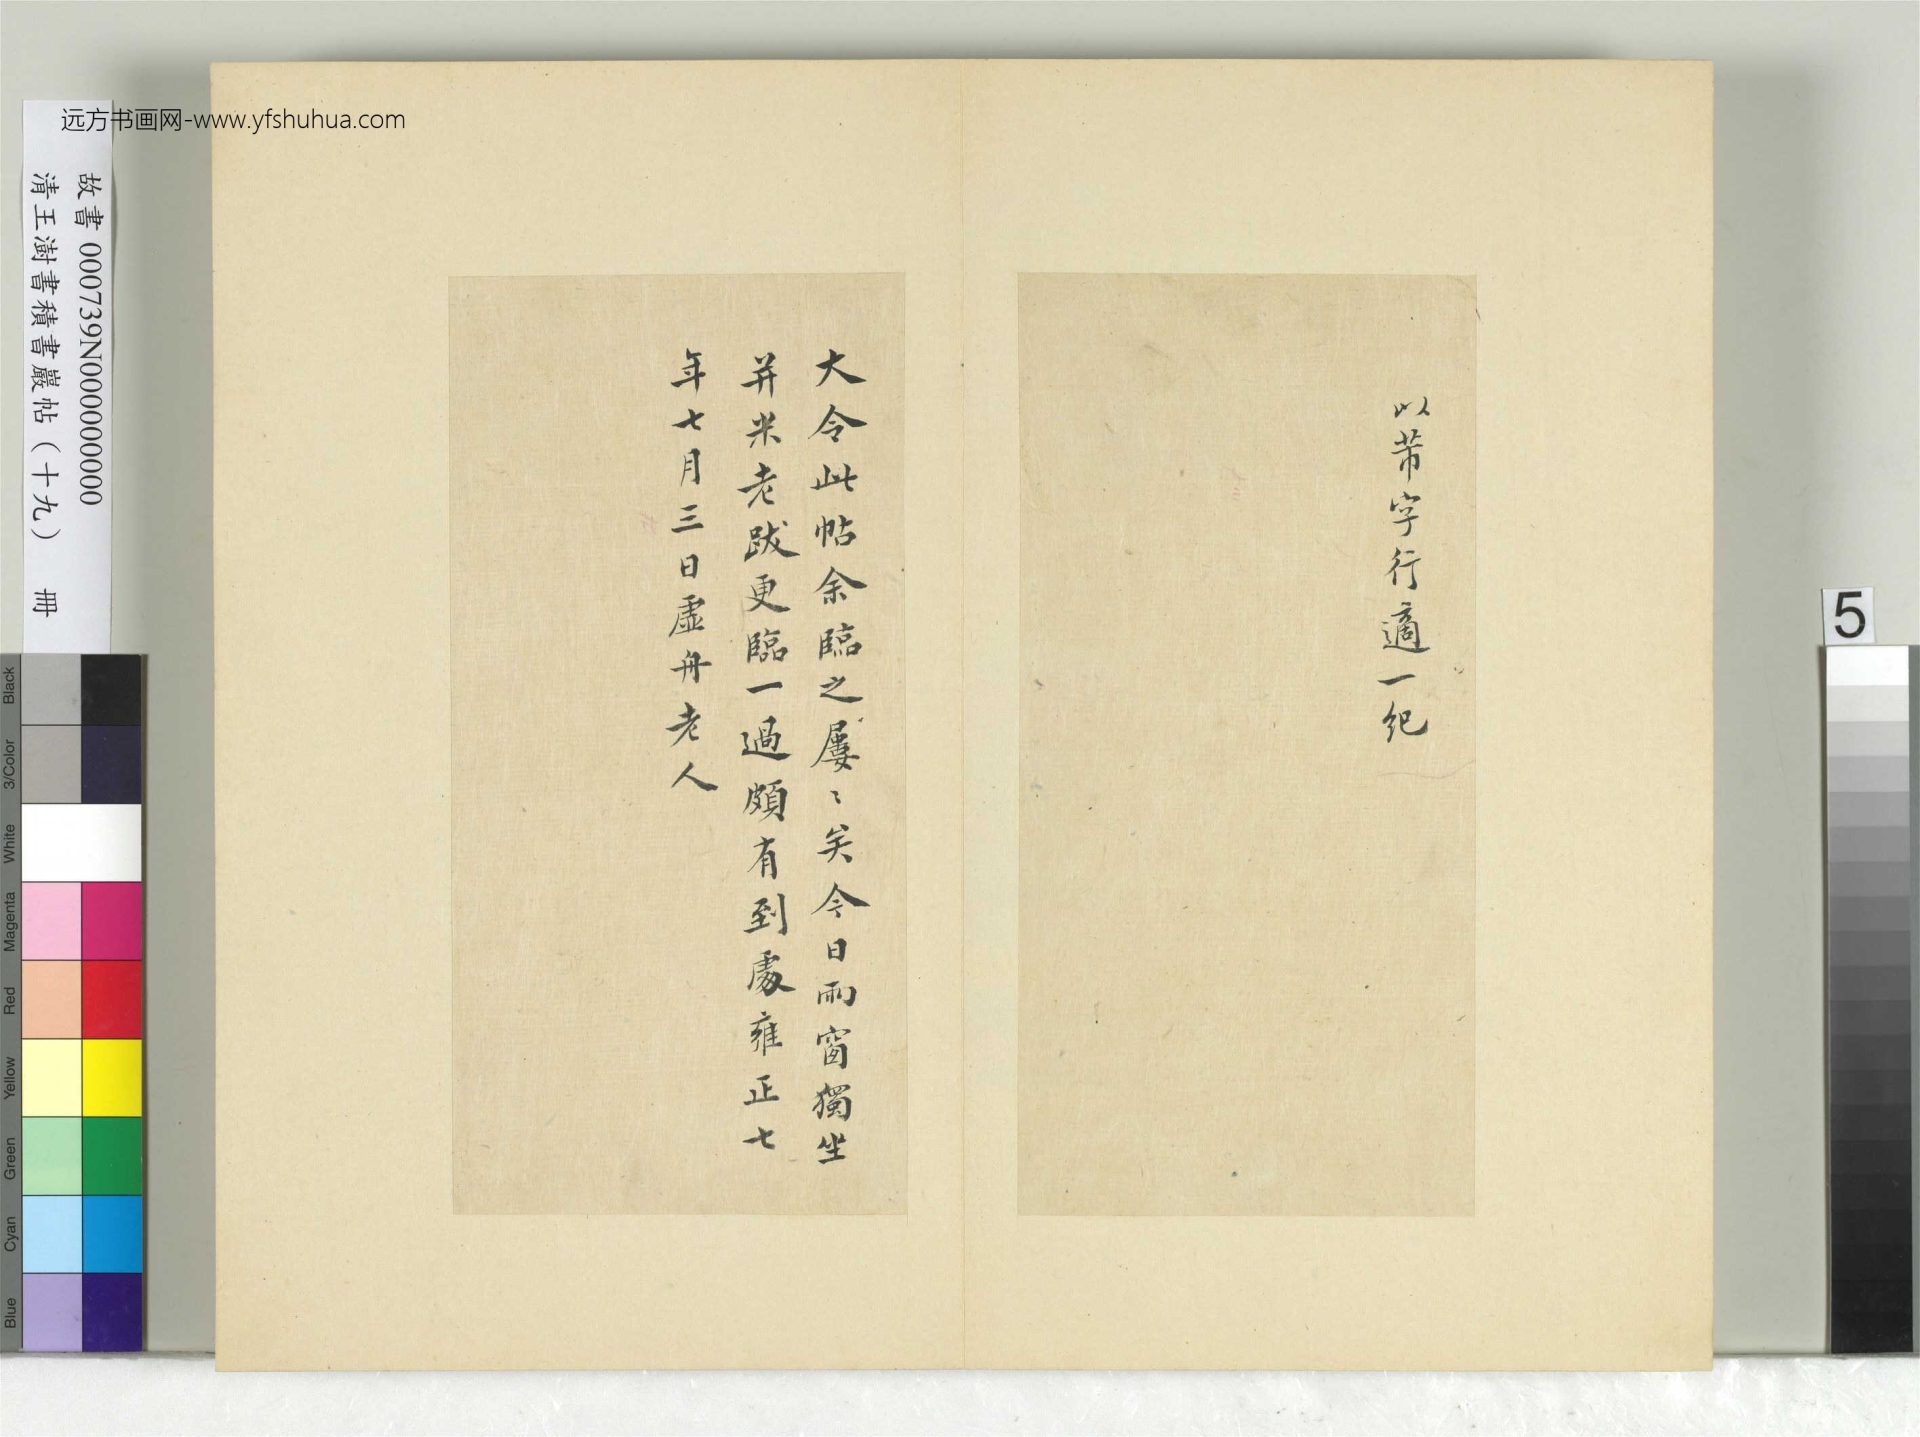 远方书画网-www.yfshuhua.com
故書 000739N000000000
清王澍書積書巖帖（十九） 冊
以芾字行適一紀
大令此帖余臨之屢〻矣今日雨窗獨坐
并米老跋更臨一過頗有到處雍正七
年七月三日虛舟老人
5
Black
3/Color
White
Magenta
Red
Yellow
Green
Cyan
Blue